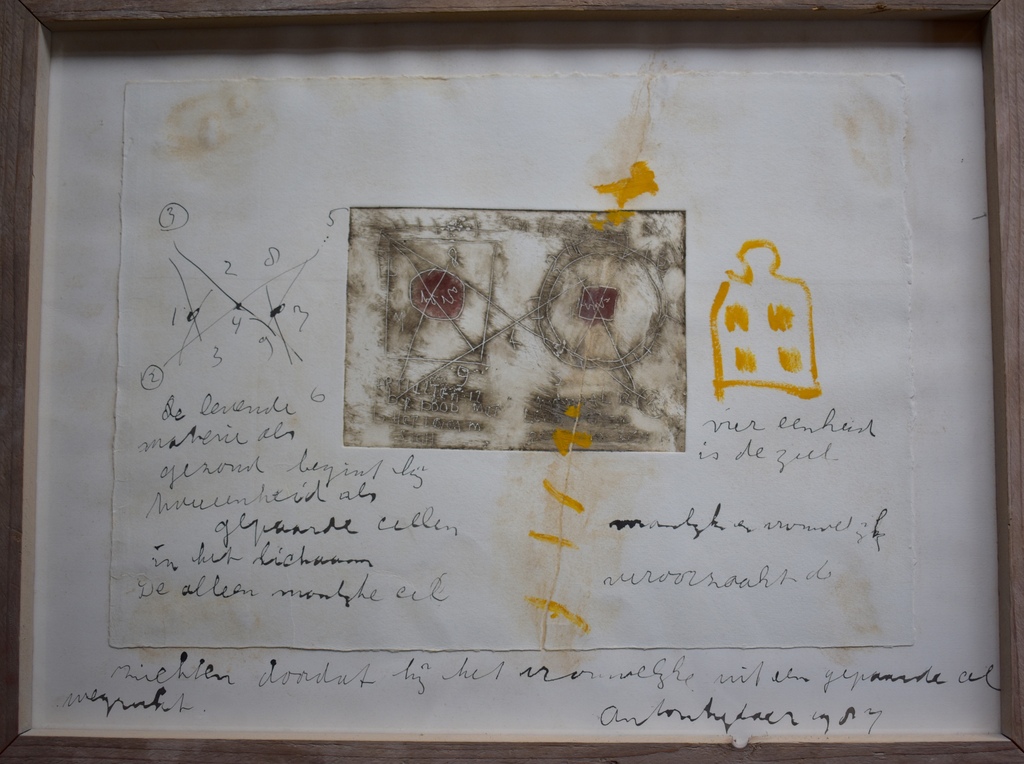 3
5
2 8
1 4 7
3 9
2
6
De levende
materie als
gezond begint bij
tweeenheid als
gepaarde cellen
in het lichaam
De alleen manlijke cel
vier eenheid
is de ziel
manlijk en vrouwelijk
veroorzaakt de
ziekten doordat hij het vrouwelijke uit een gepaarde cel
wegrukt.
Anton Heyboer 1987